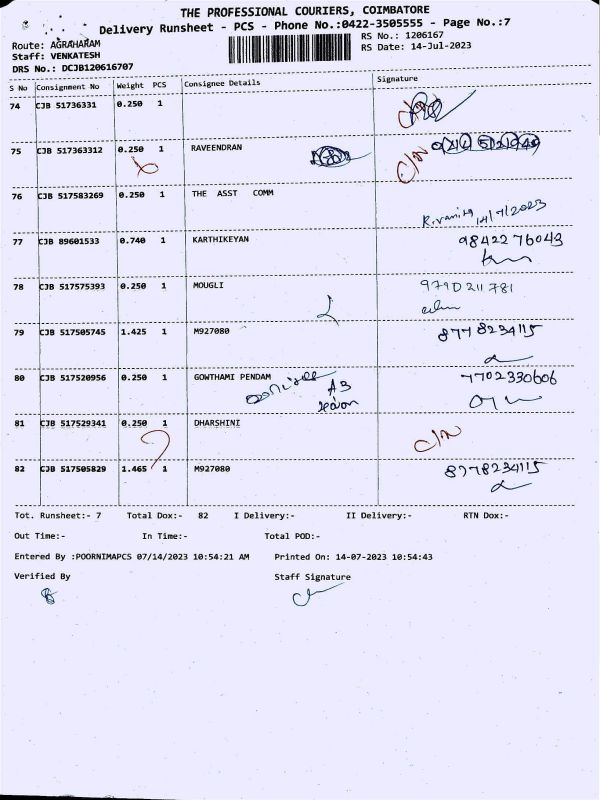 THE PROFESSIONAL COURIERS, COIMBATORE
Delivery Runsheet - PCS - Phone No.:0422-3505555 - Page No.:7
Route: AGRAHARAM
RS No.: 1206167
Staff: VENKATESH
RS Date: 14-Jul-2023
DRS No.: DCJB120616707
S No Consignment No Weight PCS Consignee Details Signature
74 CJB 51736331 0.250 1
75 CJB 517363312 0.250 1 RAVEENDRAN C/N
76 CJB 517583269 0.250 1 THE ASST COMM
14/7/2023
77 CJB 89601533 0.740 1 KARTHIKEYAN 9842276043
78 CJB 517575393 0.250 1 MOUGLI 9790211781
79 CJB 517505745 1.425 1 M927080 8778234115
80 CJB 517520956 0.250 1 GOWTHAMI PENDAM 7702330606
81 CJB 517529341 0.250 1 DHARSHINI C/N
82 CJB 517505829 1.465 1 M927080 8778234115
Tot. Runsheet:- 7 Total Dox:- 82 I Delivery:- II Delivery:- RTN Dox:-
Out Time:- In Time:- Total POD:-
Entered By :POORNIMAPCS 07/14/2023 10:54:21 AM Printed On: 14-07-2023 10:54:43
Verified By Staff Signature